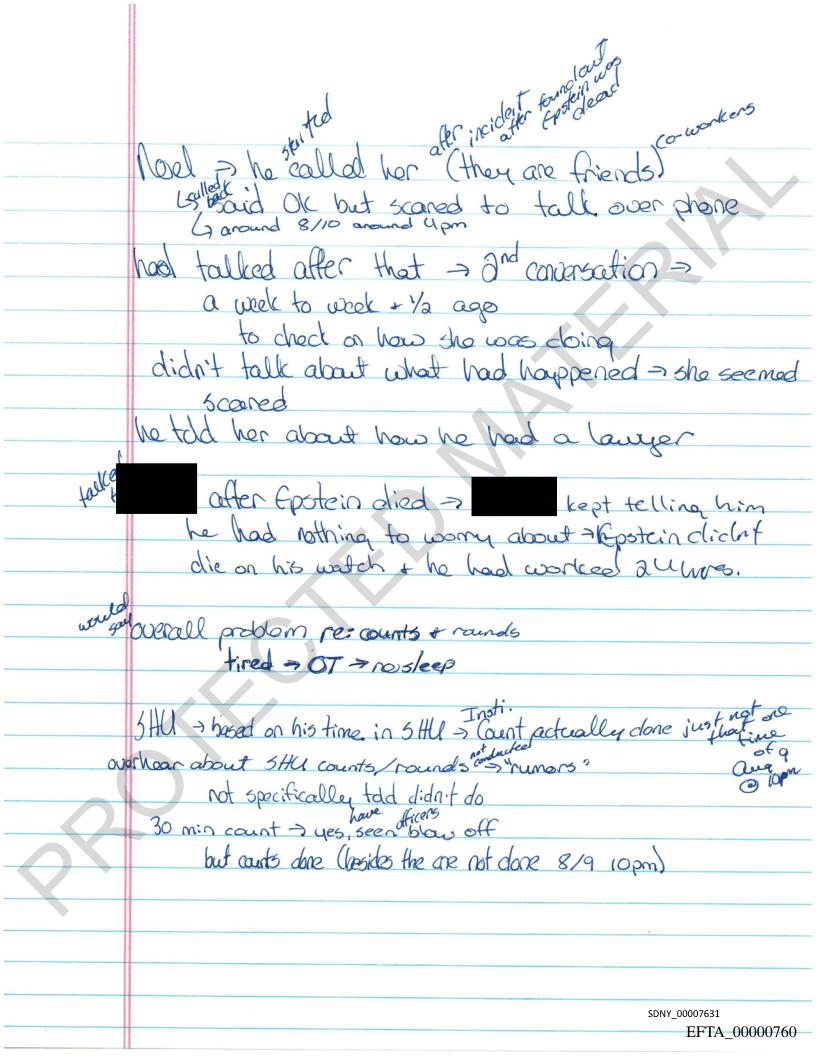 after incident
after found out
Epstein was
dead
started
co-workers
Noel → he called her (they are friends)
↳ called back
said OK but scared to talk over phone
↳ around 8/10 around 4pm
had talked after that → 2nd conversation →
a week to week + 1/2 ago
to check on how she was doing
didn't talk about what had happened → she seemed
scared
he told her about how he had a lawyer
talked
after Epstein died → kept telling him
he had nothing to worry about → Epstein didn't
die on his watch + he had worked 24 hrs.
would say
overall problem re: counts + rounds
tired → OT → no sleep
Insti.
SHU → based on his time in SHU → Count actually done just not one
that time
of 9
Aug
@ 10pm
not conducted
overhear about SHU counts/rounds → "rumors"
not specifically told didn't do
have officers
30 min count → yes, seen blow off
but counts done (besides the one not done 8/9 10pm)
PROTECTED MATERIAL
SDNY_00007631
EFTA_00000760